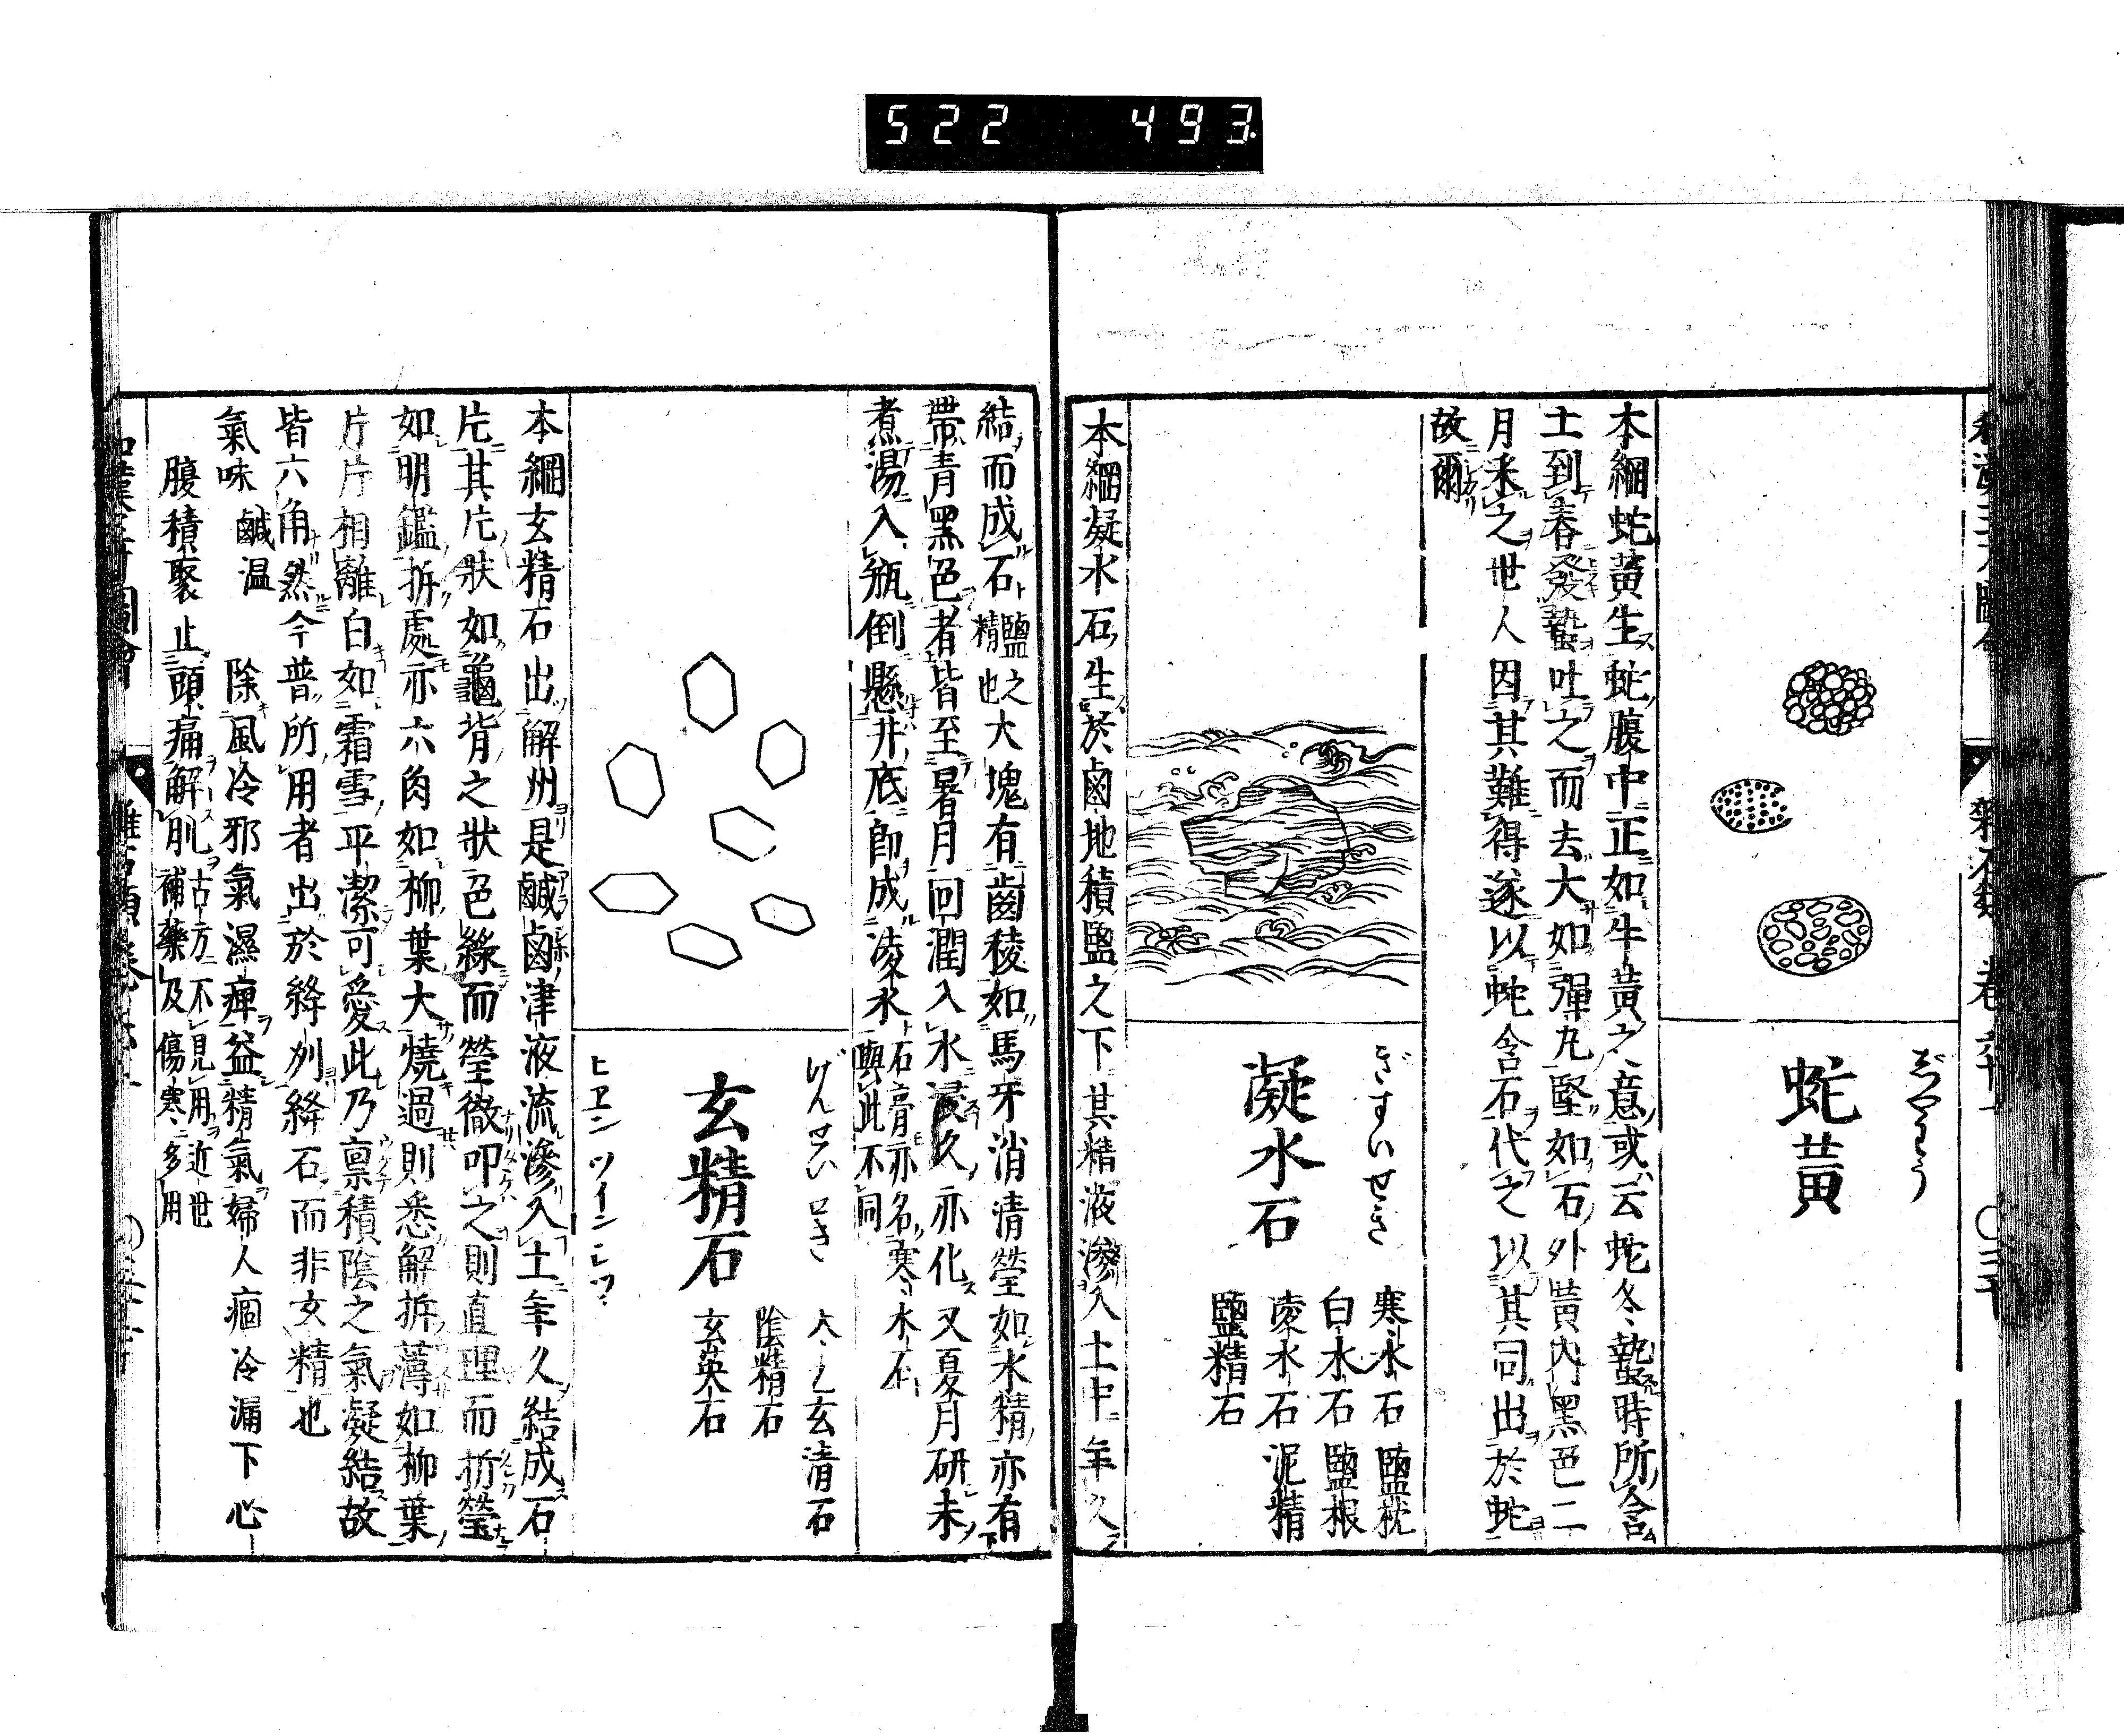 522 493
雜石類 卷六十一
蛇黃
本綱蛇黃生蛇腹中正如牛黃之意或云蛇冬蟄時所含
土到春發蟄吐之而去大如彈丸堅如石外黃內黑色二
月采之世人因其難得遂以蛇含石代之以其同出於蛇
故爾
ぎすいせき
凝水石
寒水石 鹽枕
白水石 鹽根
凌水石 泥精
鹽精石
本綱凝水石生於鹵地積鹽之下其精液滲入土中年久
結而成石鹽之精也大塊有齒稜如馬牙消清瑩如水精亦有
帶青黑色者皆至暑月回潤入水浸久亦化又夏月研末
煮湯入瓶倒懸井底即成凌水石膏亦名寒水石與此不同
げんせいせき
玄精石
太乙玄清石
陰精石
玄英石
ヒヱン ツイン シツ
本綱玄精石出解州是鹹鹵津液流滲入土年久結成石
片其片狀如龜背之狀色綠而瑩徹叩之則直理而折瑩
如明鑑拆處亦六角如柳葉大燒過則悉解拆薄如柳葉
片片相離白如霜雪平潔可愛此乃禀積陰之氣凝結故
皆六角然今普所用者出於絳州絳石而非玄精也
氣味 鹹温 除風冷邪氣濕痺益精氣婦人痼冷漏下心
腹積聚止頭痛解肌古方不見用近世補藥及傷寒多用